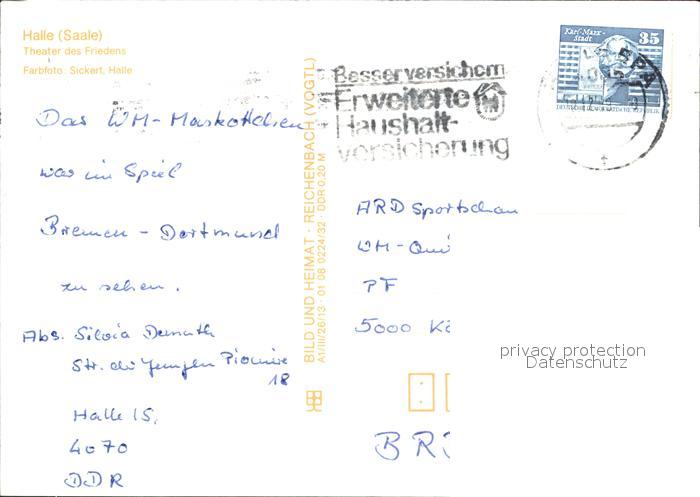 Halle (Saale)
Theater des Friedens
Farbfoto: Sickert, Halle
Das WM-Maskottchen
war im Spiel
Bremen - Dortmund
zu sehen.
Abs. Silvia Demuth
Str. der Jungen Pioniere
18
Halle 15,
4070
DDR
BILD UND HEIMAT · REICHENBACH (VOGTL)
A1/III/26/13 · 01 08 0224/32 · DDR 0,20 M
Besser versichern
Erweiterte
Haushalt-
versicherung
Karl-Marx-
Stadt
35
DEUTSCHE DEMOKRATISCHE REPUBLIK
ARD Sportschau
WM-Qui
PF
5000 Kö
BR
privacy protection
Datenschutz